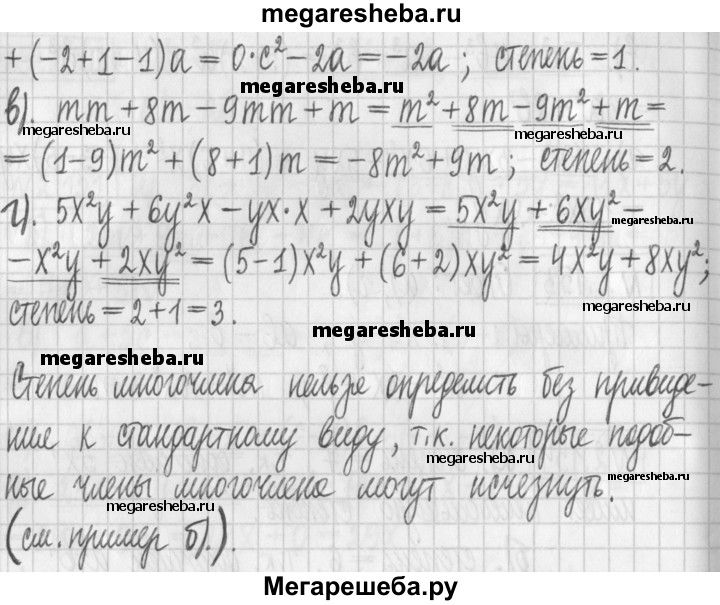 megaresheba.ru
+(-2+1-1)a = 0·c²-2a = -2a ; степень=1.
megaresheba.ru
в). mm+8m-9mm+m = m²+8m-9m²+m =
megaresheba.ru
megaresheba.ru
= (1-9)m²+(8+1)m = -8m²+9m ; степень=2.
г). 5x²y+6y²x-yx·x+2yxy = 5x²y+6xy²-
megaresheba.ru
-x²y+2xy² = (5-1)x²y+(6+2)xy² = 4x²y+8xy²;
степень=2+1=3.
megaresheba.ru
megaresheba.ru
Степень многочлена нельзя определить без приведе-
ния к стандартному виду, т.к. некоторые подоб-
megaresheba.ru
ные члены многочлена могут исчезнуть.
megaresheba.ru
(см. пример б).).
Мегарешеба.ру